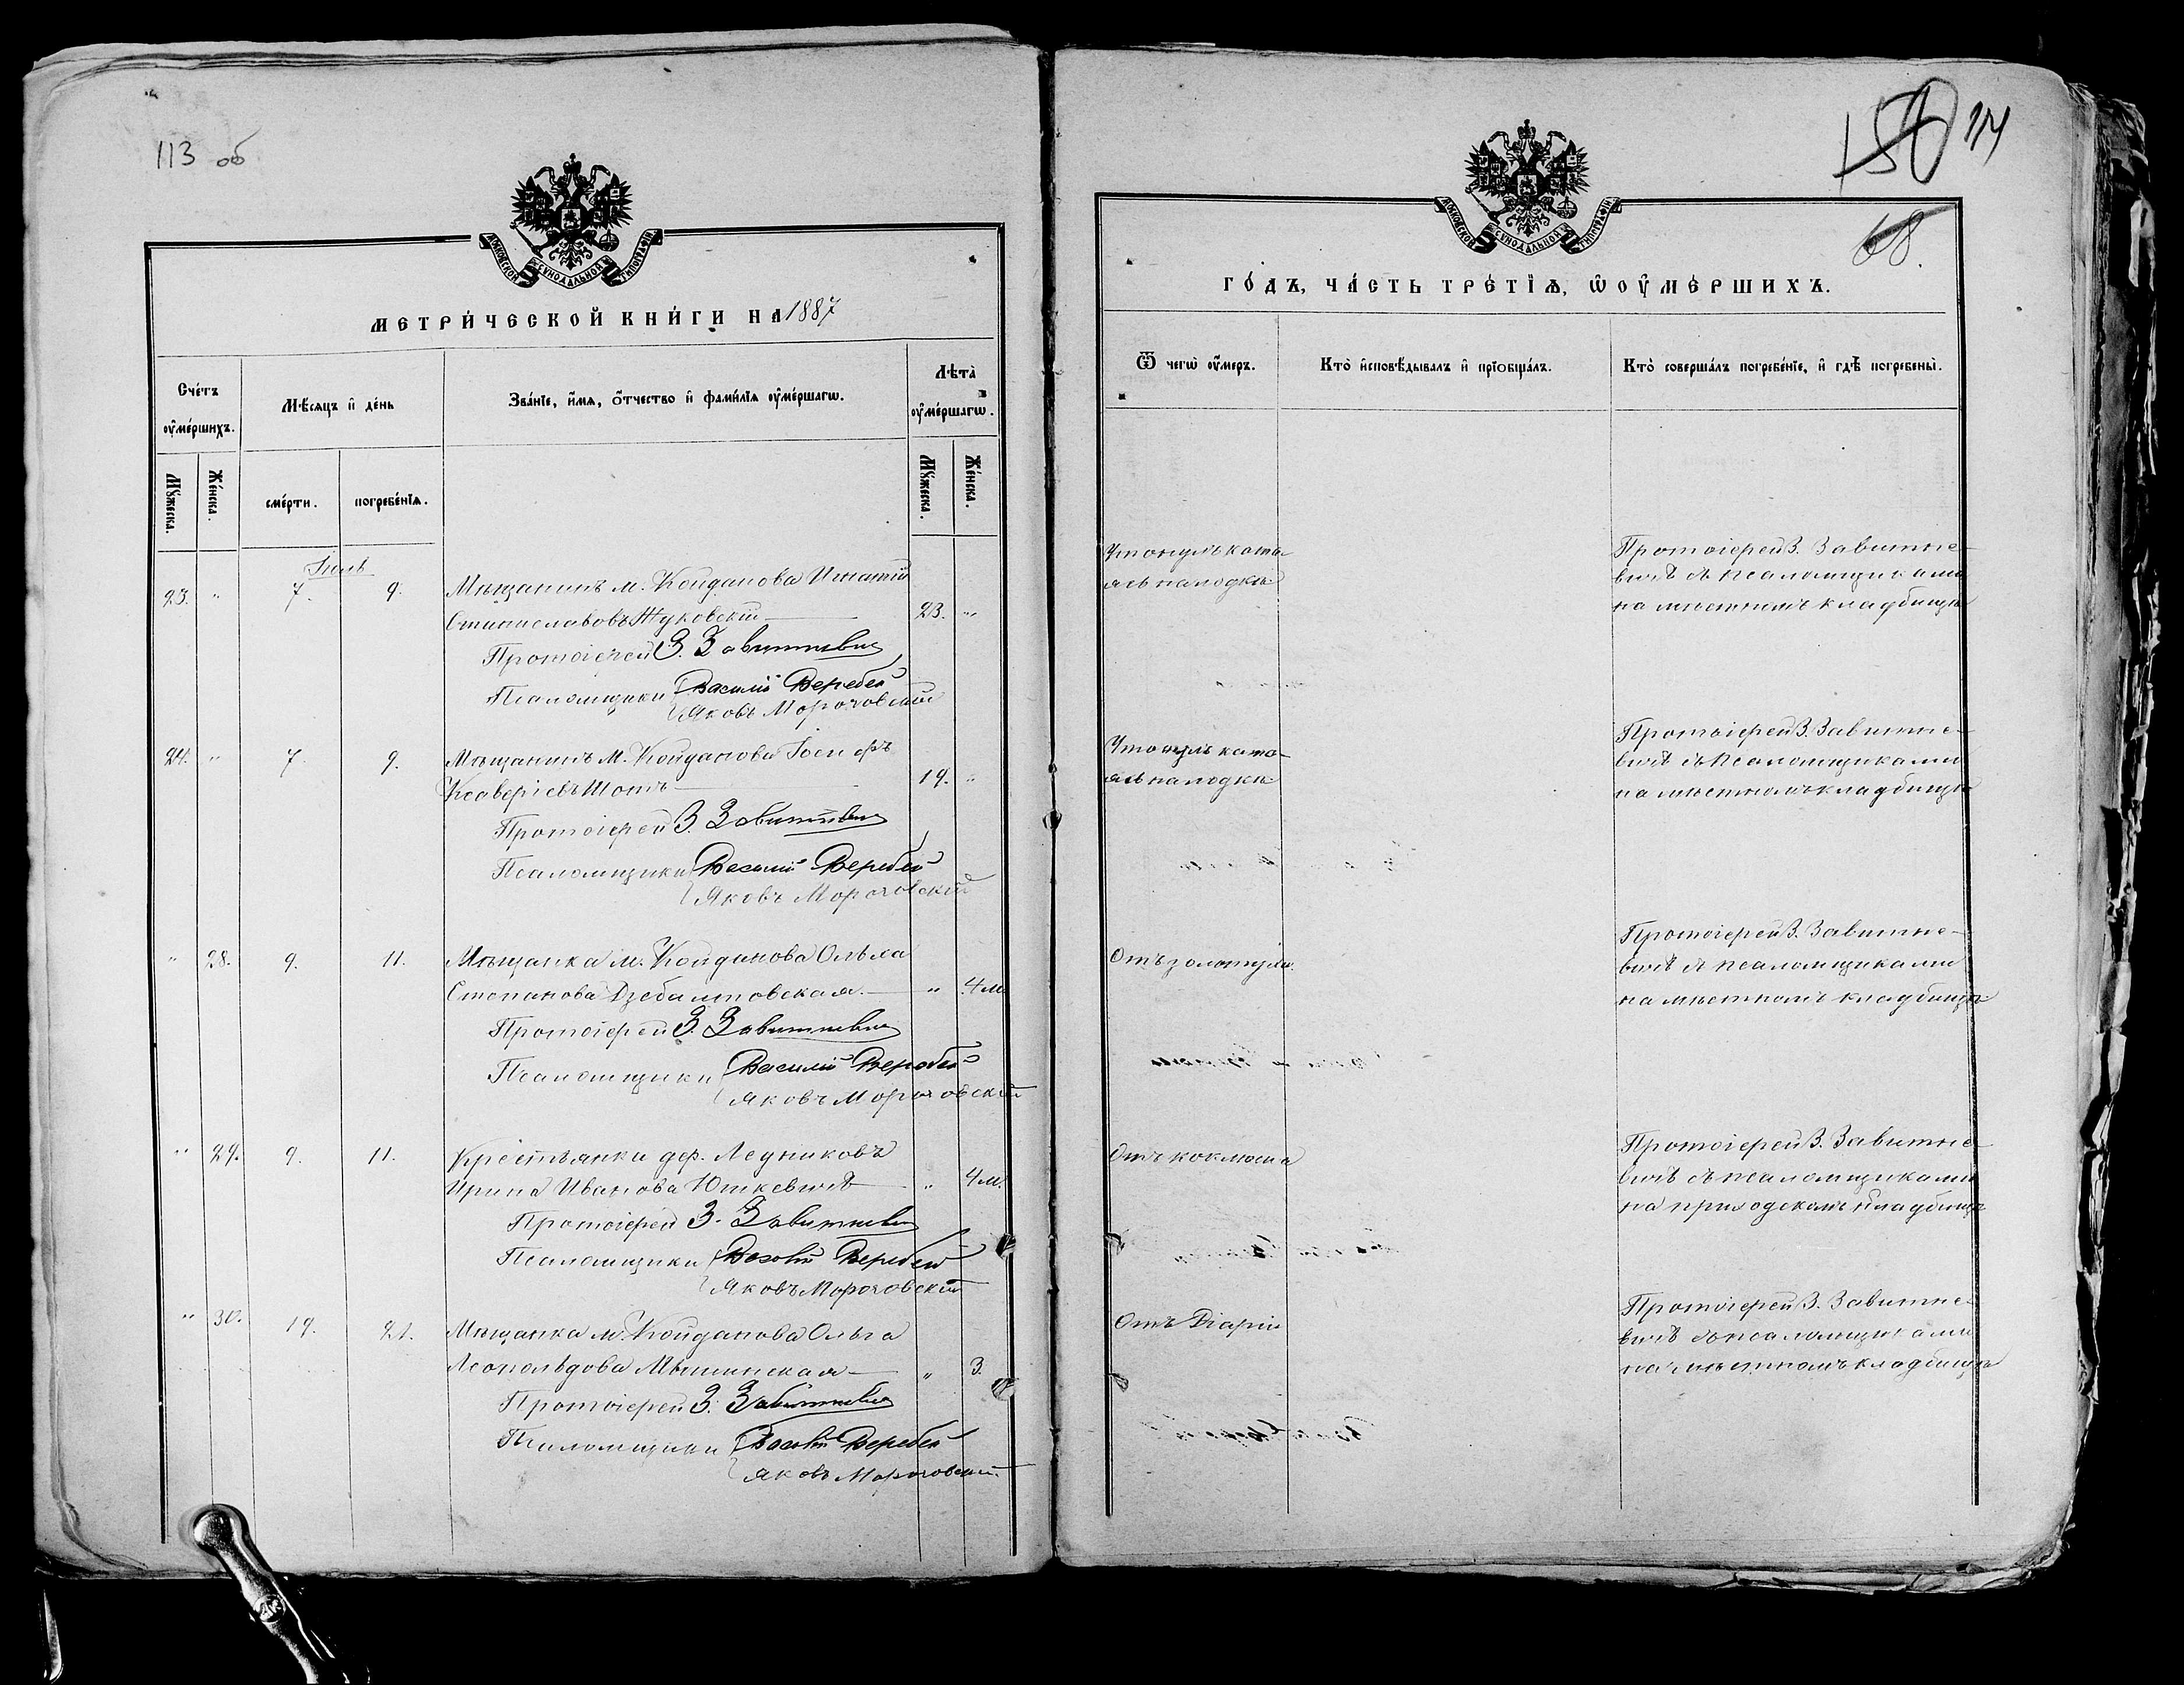 113 об
МОСКОВСКОЙ СѴНОДАЛЬНОЙ ТИПОГРАФІИ
МЕТРИ́ЧЕСКОЙ КНИ́ГИ НА 1887
Сче́тъ ᲂу҆ме́ршихъ.
Мѣ́сяцъ и҆ де́нь
Зва́нїе, и҆́мѧ, ѻ҆́тчество и҆ фами́лїѧ ᲂу҆ме́ршагѡ.
Лѣта̀ ᲂу҆ме́ршагѡ.
Мꙋ́жеска.
Же́нска.
сме́рти.
погребе́нїѧ.
Мꙋ́жеска.
Же́нска.
Іюль
23. " 7. 9. Мѣщанинъ м. Койданова Игнатій
Станиславовъ Жуковскій 23. "
Протоіерей З. Завитневич
Псаломщики Василій Веребей
Яковъ Морочовскій
24. " 7. 9. Мѣщанинъ м. Койданова Іосифъ
Ксаверіевъ Шотъ 19. "
Протоіерей З. Завитневич
Псаломщики Василій Веребей
Яковъ Морочовскій
" 28. 9. 11. Мѣщанка м. Койданова
Степанова " 4 м.
Протоіерей З. Завитневич
Псаломщики Василій Веребей
Яковъ Морочовскій
" 29. 9. 11. Крестьянки дер. Ледниковъ
Ирина Иванова Юшкевичъ " 4 м.
Протоіерей З. Завитневич
Псаломщики Василій Веребей
Яковъ Морочовскій
" 30. 19. 21. Мѣщанка м. Койданова Ольга
Леопольдова " 3.
Протоіерей З. Завитневич
Псаломщики Василій Веребей
Яковъ Морочовскій
150 114
68.
МОСКОВСКОЙ СѴНОДАЛЬНОЙ ТИПОГРАФІИ
ГО́ДЪ, ЧА́СТЬ ТРЕ́ТЇѦ, Ѡ҆ ОУ҆МЕ́РШИХЪ.
Ѿ чегѡ̀ ᲂу҆́меръ.
Кто̀ и҆сповѣ́дывалъ и҆ прїѡбща́лъ.
Кто̀ соверша́лъ погребе́нїе, и҆ гдѣ̀ погребены̀.
Утонулъ ката-
ясь на лодкѣ
Протоіерей З. Завитне-
вичъ съ псаломщиками
на мѣстномъ кладбищѣ
Утонулъ ката-
ясь на лодкѣ
Протоіерей З. Завитне-
вичъ съ псаломщиками
на мѣстномъ кладбищѣ
Отъ золотухи.
Протоіерей З. Завитне-
вичъ съ псаломщиками
на мѣстномъ кладбищѣ
Отъ коклюша
Протоіерей З. Завитне-
вичъ съ псаломщиками
на приходскомъ кладбищѣ
Отъ Діаріи
Протоіерей З. Завитне-
вичъ съ псаломщиками
на мѣстномъ кладбищѣ